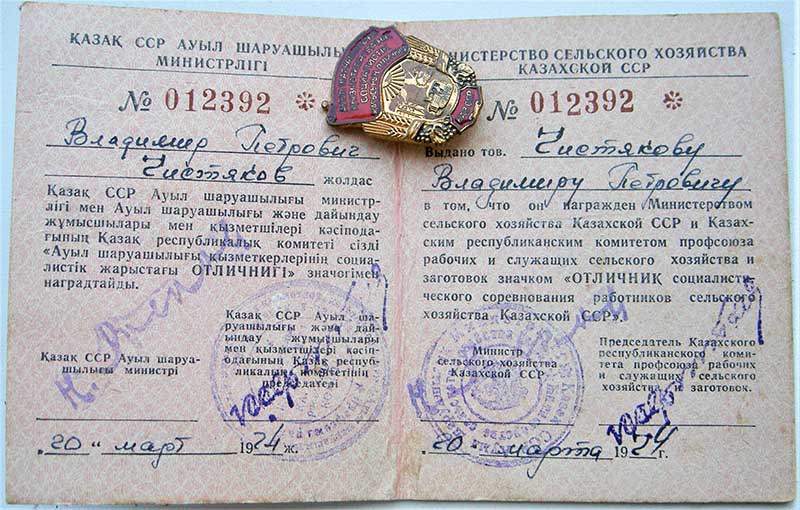 ҚАЗАҚ ССР АУЫЛ ШАРУАШЫЛЫ
МИНИСТРЛІГІ
№ 012392 *
Владимир Петрович
Чистяков жолдас
Қазақ ССР Ауыл шаруашылығы министр-
лігі мен Ауыл шаруашылығы және дайындау
жұмысшылары мен қызметшілері кәсіпода-
ғының Қазақ республикалық комитеті сізді
«Ауыл шаруашылығы қызметкерлерінің социа-
листік жарыстағы ОТЛИЧНИГІ» значогімен
наградтайды.
Қазақ ССР Ауыл шаруа-
шылығы министрі
Қазақ ССР Ауыл ша-
руашылығы және дай-
ындау жұмысшылары
мен қызметшілері кәсіп-
одағының Қазақ респуб-
ликалық комитетінің
председателі
„20" март 1974 ж.
МИНИСТЕРСТВО СЕЛЬСКОГО ХОЗЯЙСТВА
КАЗАХСКОЙ ССР
№ 012392 *
Выдано тов. Чистякову
Владимиру Петровичу
в том, что он награжден Министерством
сельского хозяйства Казахской ССР и Казах-
ским республиканским комитетом профсоюза
рабочих и служащих сельского хозяйства и
заготовок значком «ОТЛИЧНИК социалисти-
ческого соревнования работников сельского
хозяйства Казахской ССР».
Министр
сельского хозяйства
Казахской ССР
Председатель Казахского
республиканского коми-
тета профсоюза рабочих
и служащих сельского
хозяйства и заготовок.
„20" марта 1974 г.